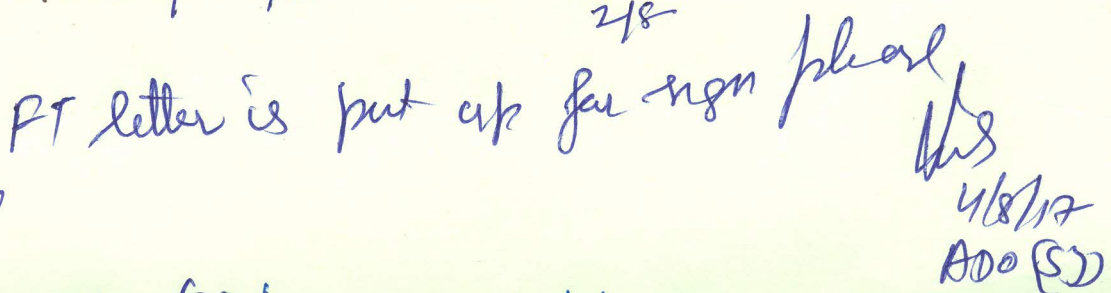 2/8
FT letter is put up for sign please
4/8/17
ADO (S)